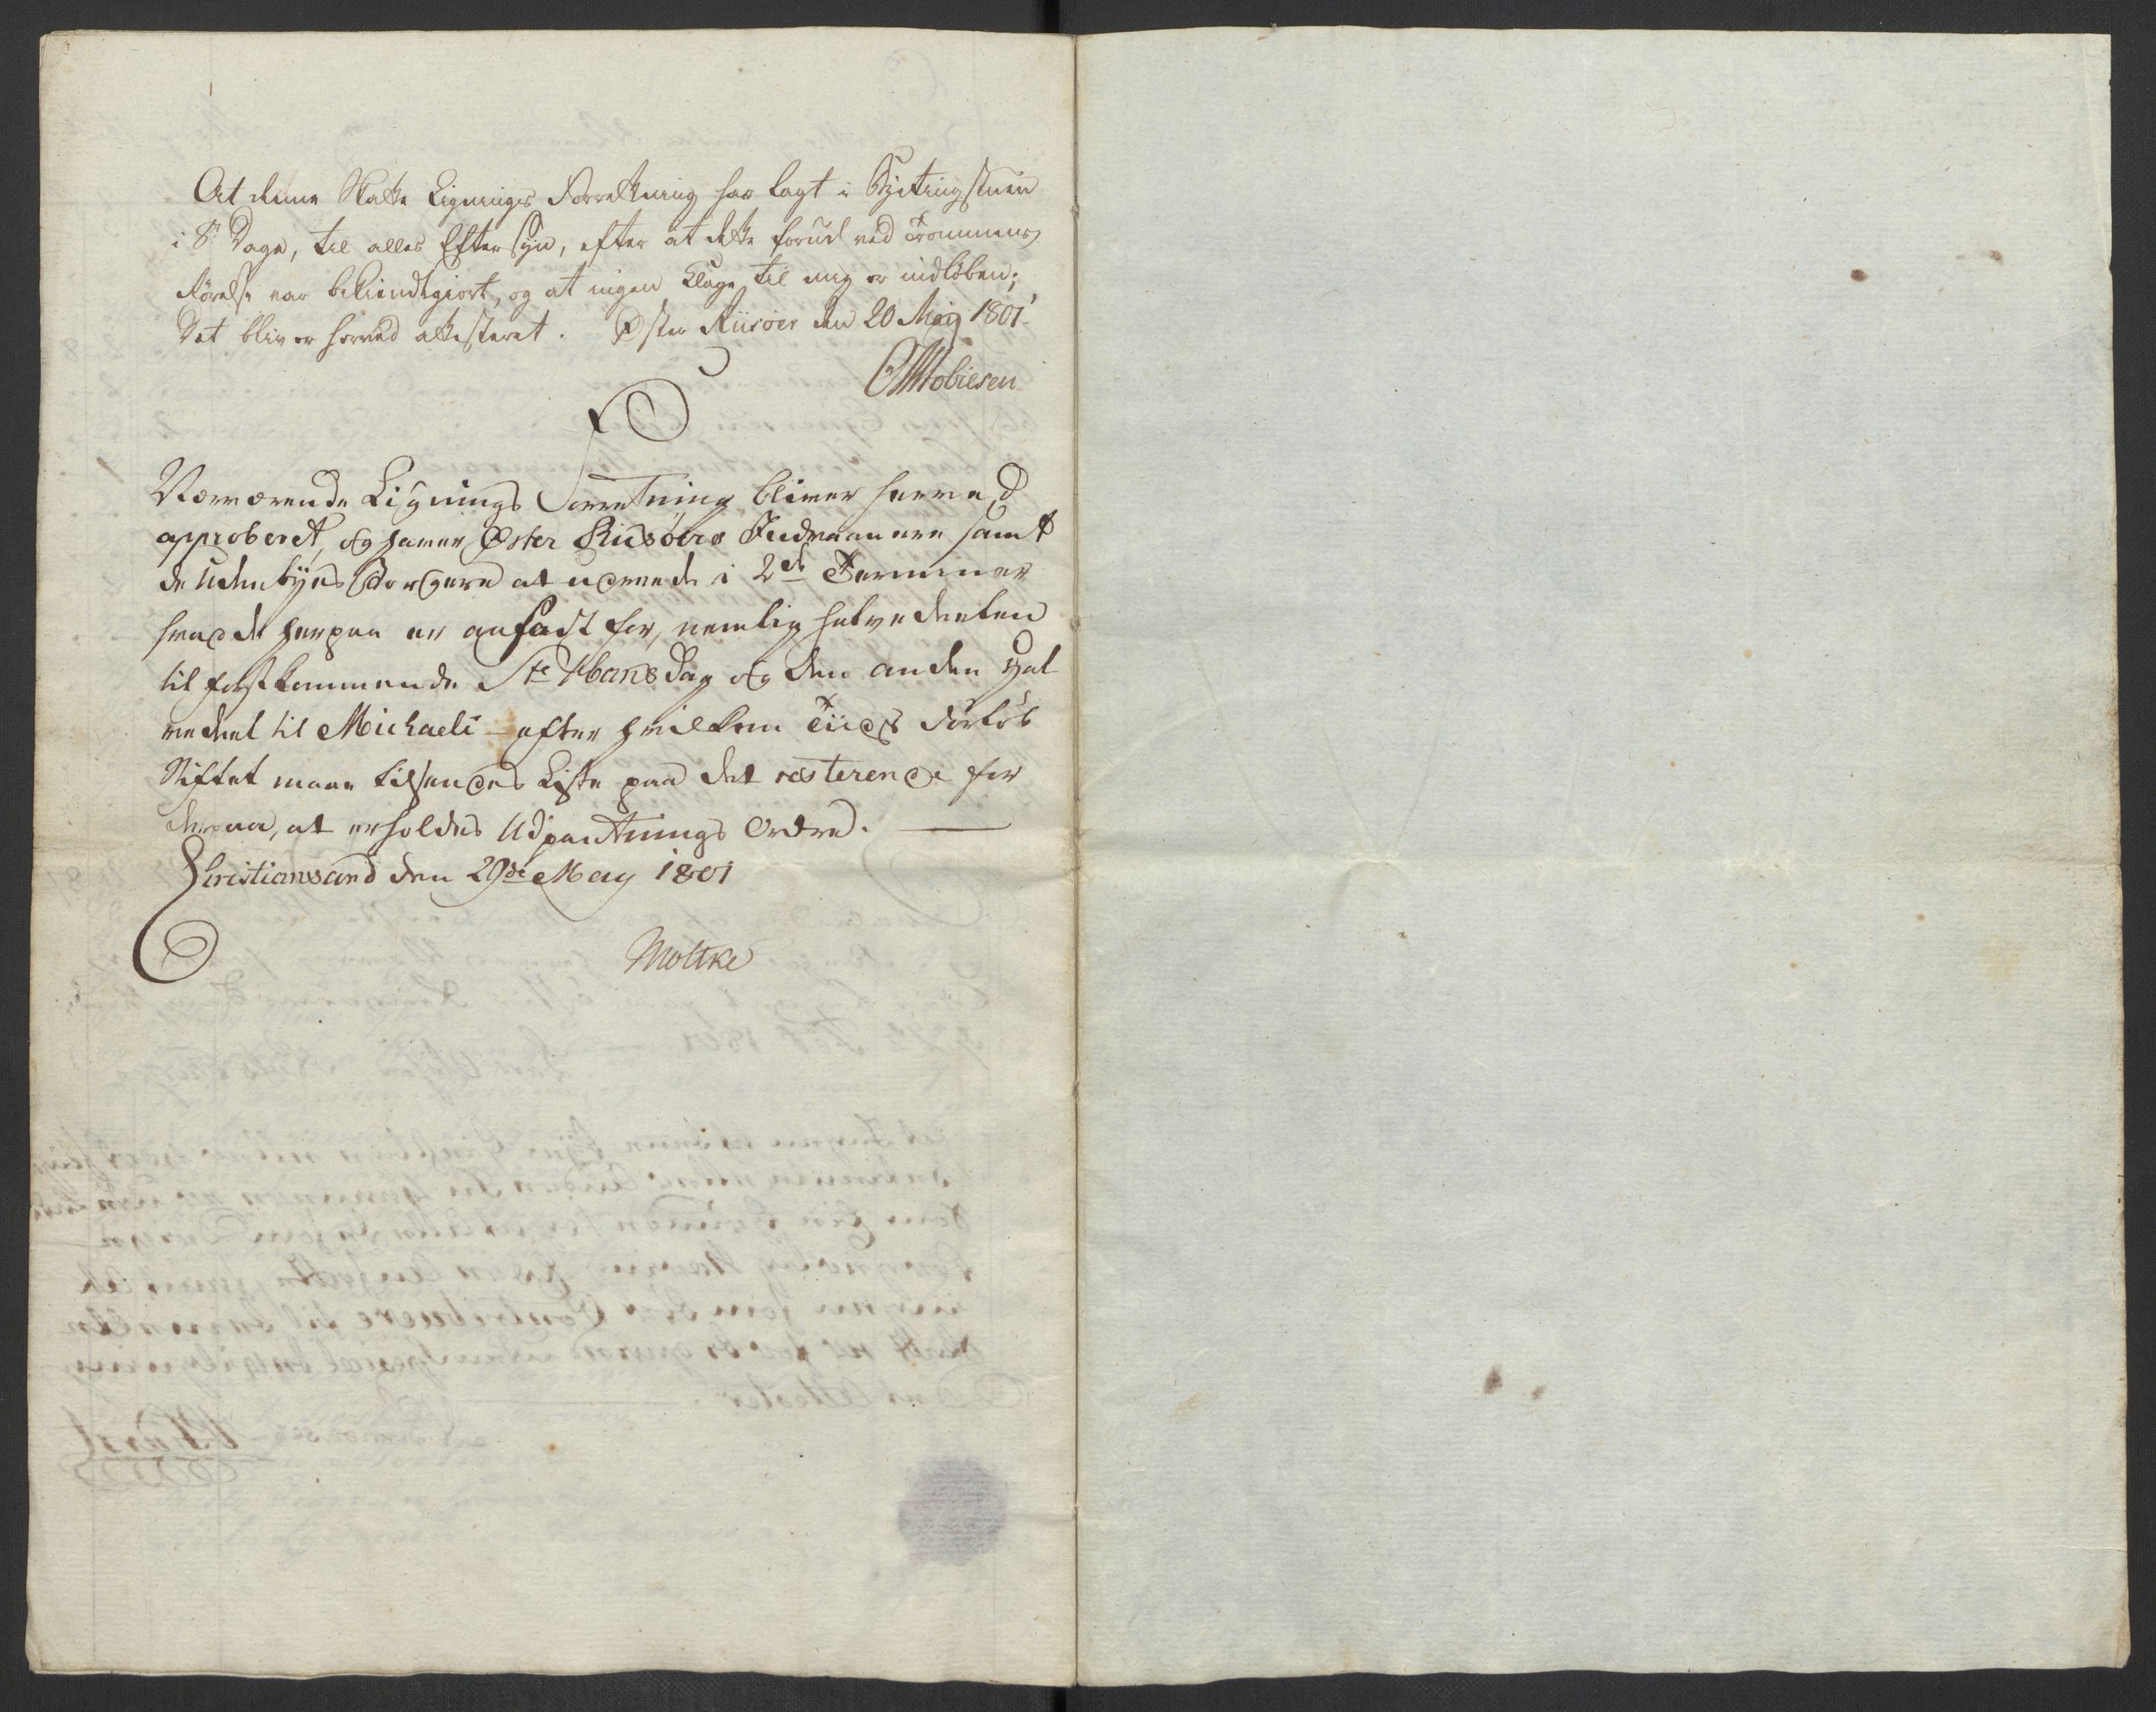 At denne Skatte Lignings Forretning har lagt i Bytingstuen
i 8te Dage, til alles Eftersyn, efter at dette forud ved Trommens
Rørelse var bekiendtgiort, og at ingen Klage til mig er indløben;
Det bliver herved attesteret. Øster Riisøer den 20 May 1801
Mobiesen
Nærværende Lignings Forretning bliver herved
approberet, og haver Øster Riisøers Indvaanere samt
de Udenbyes Borgere at udreede i 2de Terminer
hvad de herpaa er ansadt for, nemlig halvedeelen
til førstkommende Ste Hans Dag og den anden Hal
vedeel til Michaeli – efter hvilken Tiids Forløb
Stiftet maae tilsendes Liste paa det resterende for
derpaa, at erholdes Udpantnings Ordre.
Christiansand den 29de May 1801
Moltke